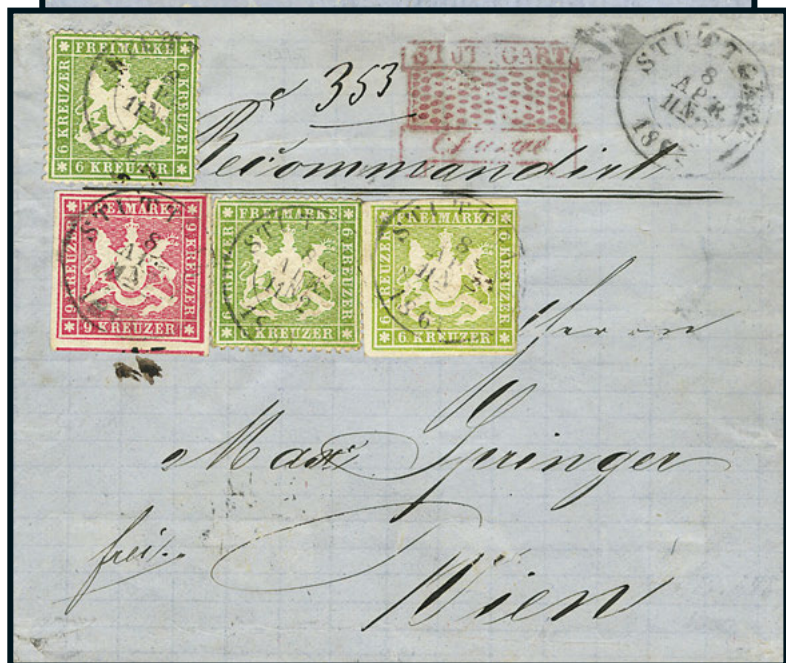 FREIMARKE
6 KREUZER
6 KREUZER
6 KREUZER
353
STUTTGART
Chargé
STUTTGART
8
APR
Recommandirt
FREIMARKE
9 KREUZER
9 KREUZER
9 KREUZER
FREIMARKE
6 KREUZER
6 KREUZER
6 KREUZER
FREIMARKE
6 KREUZER
6 KREUZER
6 KREUZER
Herrn
Max Springer
frei.
Wien